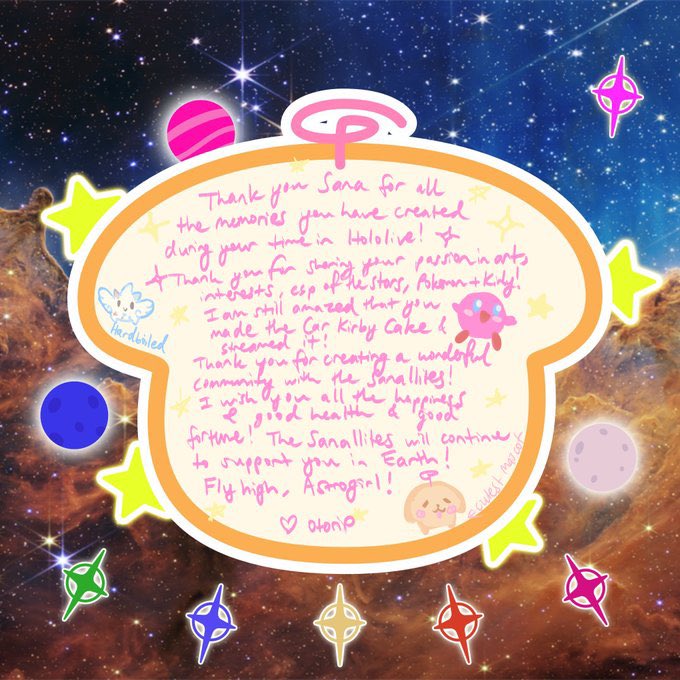 Thank you Sana for all
the memories you have created
during your time in Hololive!
Thank you for sharing your passion in arts
interests, esp of the stars, Pokemon + Kirby!
I am still amazed that you
made the Car Kirby Cake &
streamed it!
Thank you for creating a wonderful
community with the Sanallites!
I wish you all the happiness
& good health & good
fortune! The Sanallites will continue
to support you in Earth!
Fly high, Astrogirl!
♡ otoriP
Hardboiled
cutest mascot